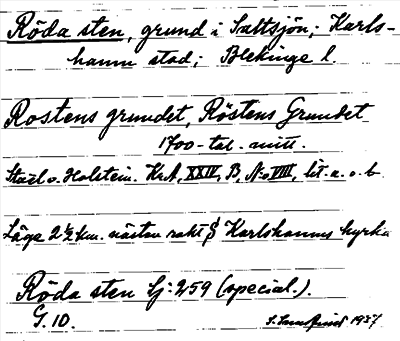 Röda sten, grund i Saltsjön; Karls-
hamn stad; Blekinge l.
Rostens grundet, Röstens Grundet
1700-tal. mitt.
Stael v. Holstein. KrA, XXIV, B, No VIII, lit. a. o. b.
Läge 2 1/2 km. nästan rakt S Karlshamns kyrka
Röda sten Sj: 259 (special.).
G. 10.
1937